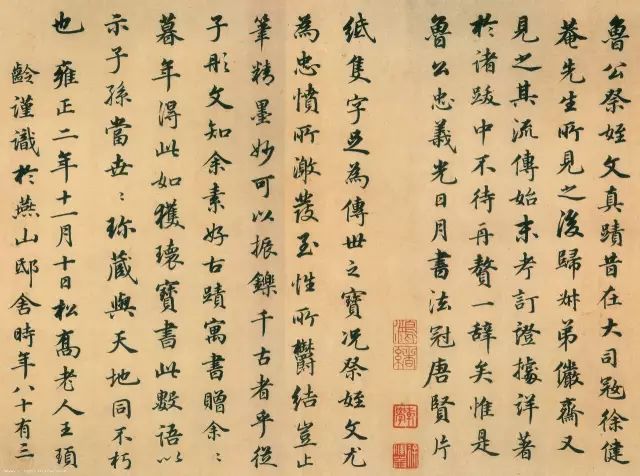 魯公祭姪文真蹟昔在大司寇徐健
菴先生所見之後歸舛弟儼齋又
見之其流傳始末考訂證據詳著
於諸跋中不待再贅一辭矣惟是
魯公忠義光日月書法冠唐賢片
紙隻字足為傳世之寶况祭姪文尤
為忠憤所激發至性所鬱結豈止
筆精墨妙可以振鑠千古者乎從
子彤文知余素好古蹟寓書贈余〻
暮年得此如獲瓌寶書此數語以
示子孫當世〻珎藏與天地同不朽
也 雍正二年十一月十日松喬老人王頊
齡謹識於燕山邸舍時年八十有三